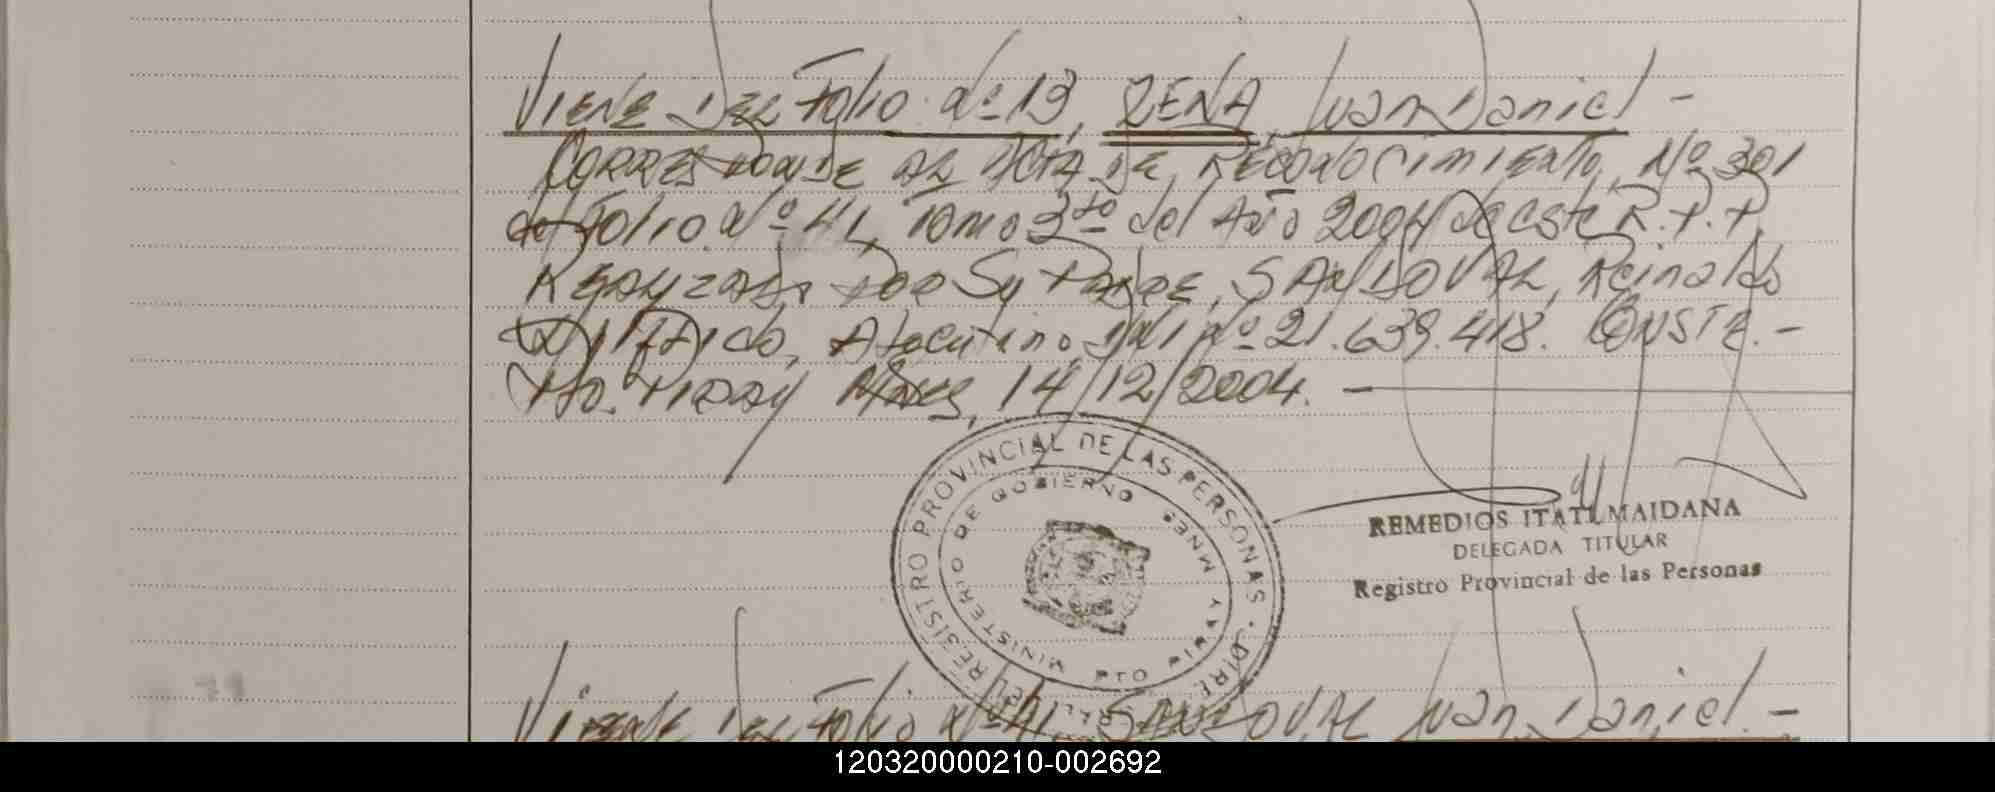 Viene del Folio Nº 19, ZENA, Juan Daniel -
Corresponde al Acta de Reconocimiento, Nº 301
del Folio Nº 41, Tomo 3to del Año 2004 de este R.P.P.
Realizada por su Padre, SANDOVAL, Reinaldo
Argentino, DNI Nº 21.639.418. CONSTE.-
Pto. Piray Mnes, 14/12/2004. -
REGISTRO PROVINCIAL DE LAS PERSONAS
MINISTERIO DE GOBIERNO
PTO PIRAY MNES
REMEDIOS ITATI MAIDANA
DELEGADA TITULAR
Registro Provincial de las Personas
Viene del Folio Nº 41, SANDOVAL Juan Daniel -
120320000210-002692